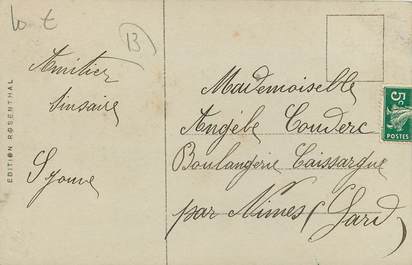 13
Amitiés
sinsaire
S Jouve
EDITION ROSENTHAL
Mademoiselle
Angèle Couderc
Boulangerie Caissargue
par Nimes (Gard)
5c
POSTES